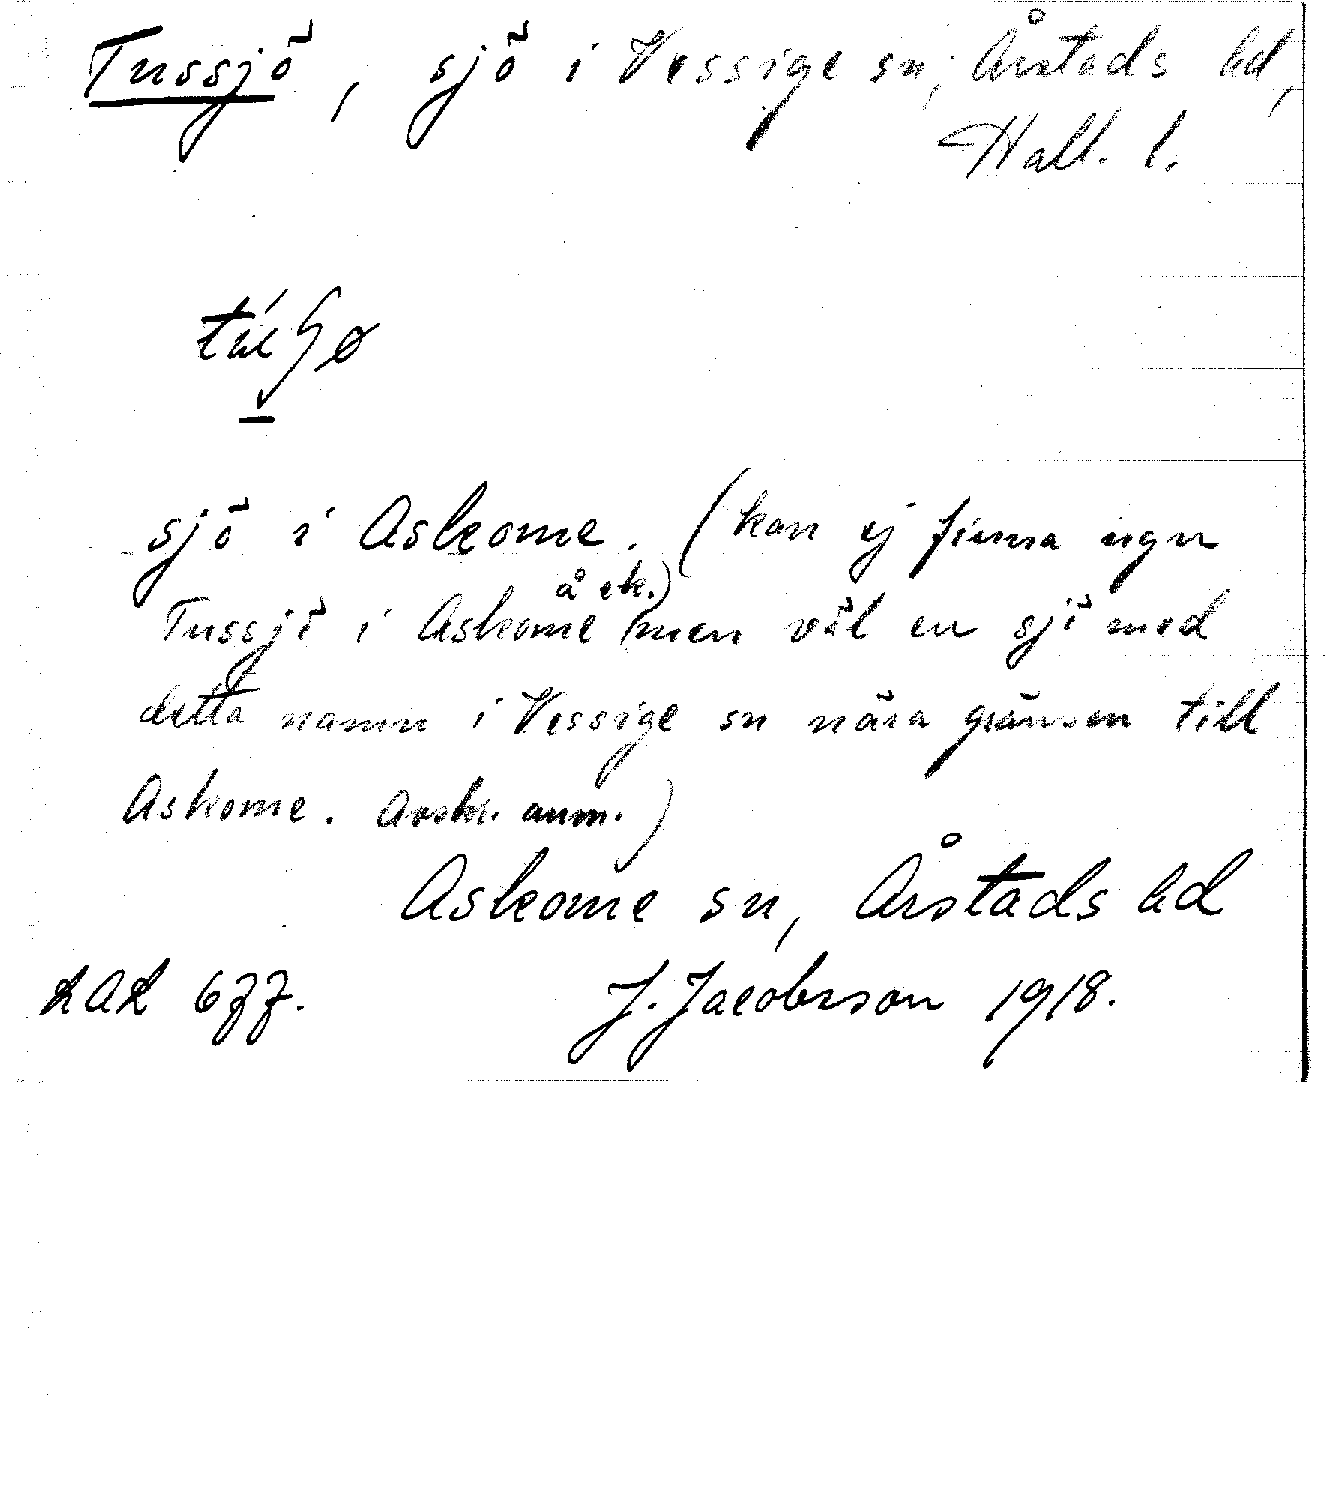 Tussjö, sjö i Vessige sn, Årstads hd,
Hall. l.
sjö i Askome. (kan ej finna ngn
Tussjö i Askome å ek.) men väl en sjö med
detta namn i Vessige sn nära gränsen till
Askome. Avskr. anm.)
Askome sn, Årstads hd
J. Jacobsson 1918.